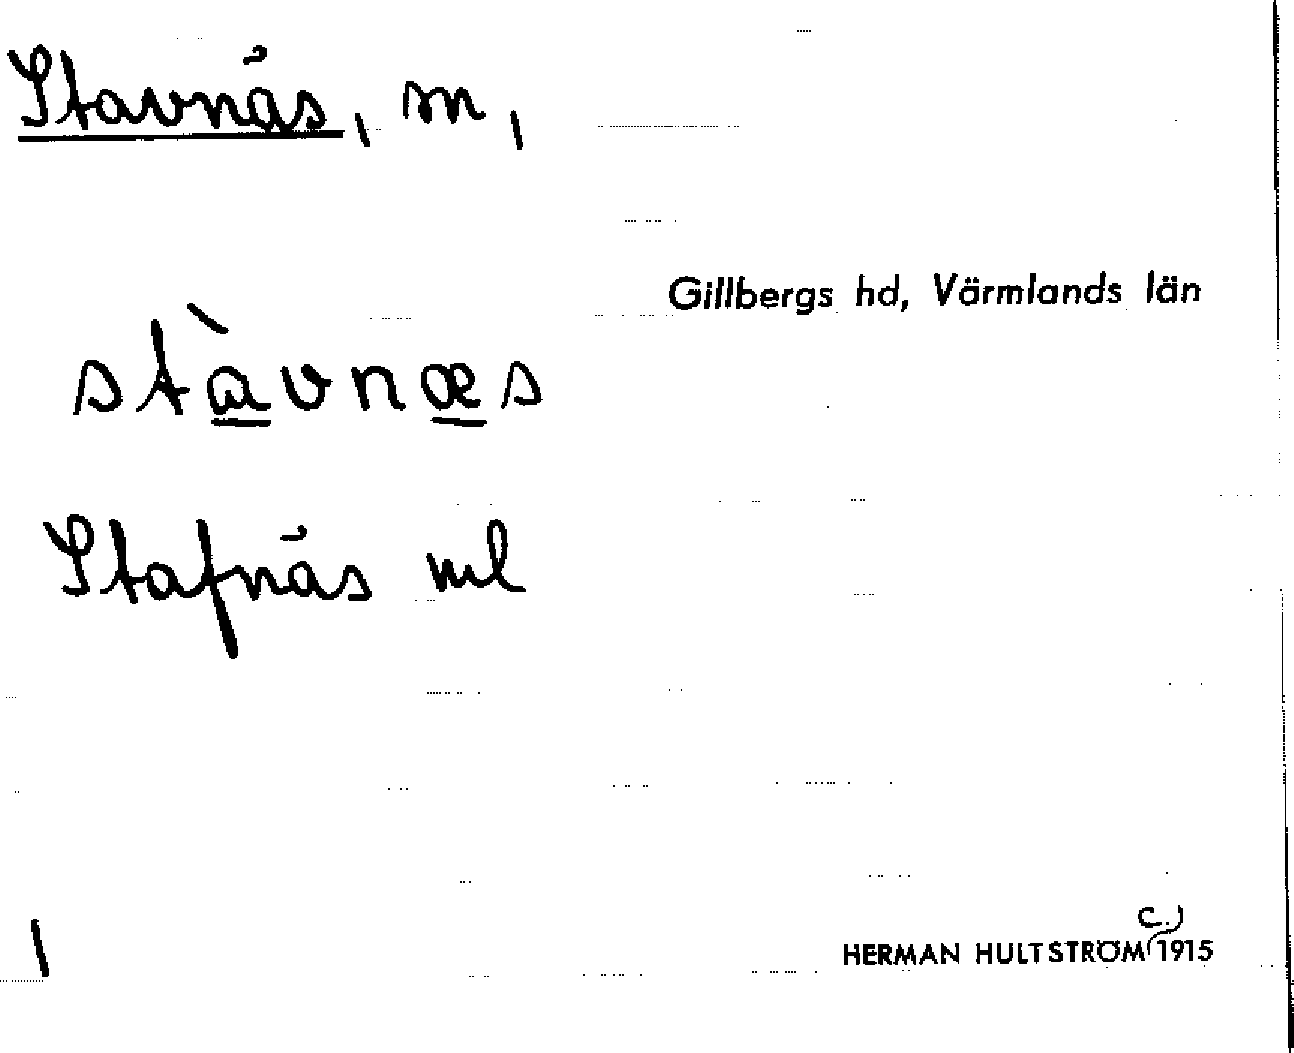 Stavnäs, sn,
Gillbergs hd, Värmlands län
stàvnæs
Stafnäs ml
HERMAN HULTSTRÖM (c.) 1915